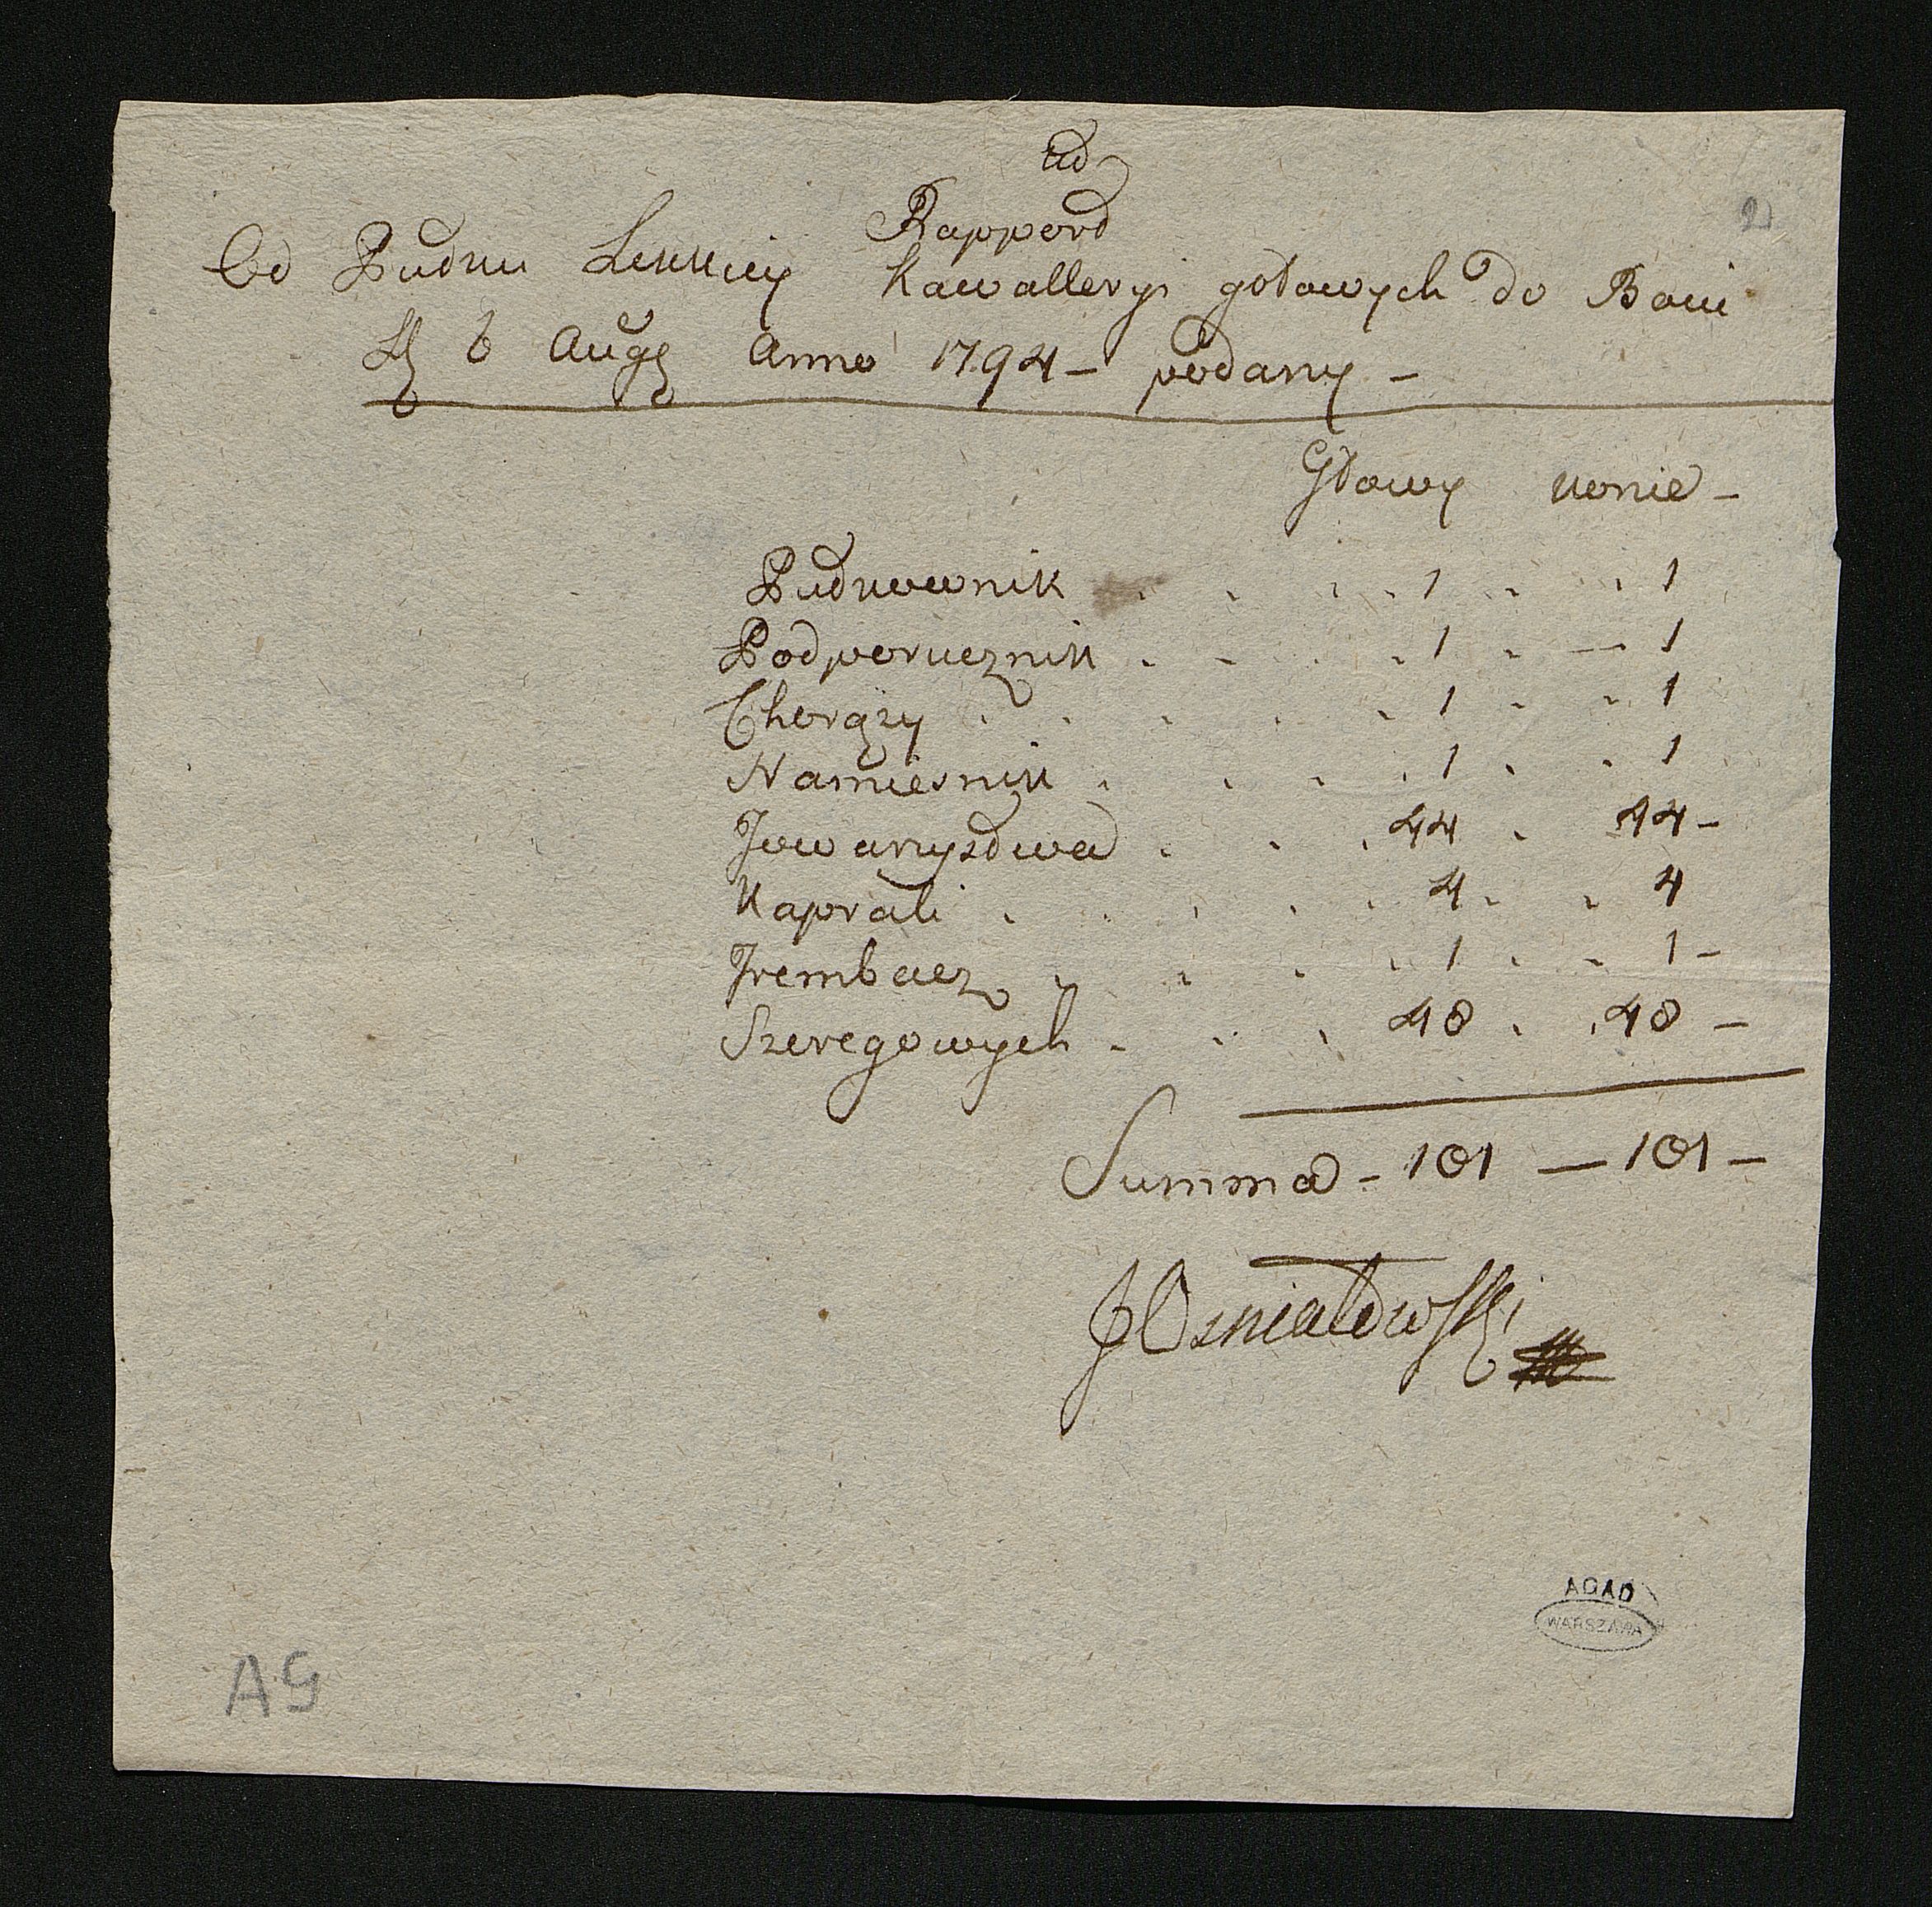 2
Rapport
Od Pułku Lekkiey Kawalleryi gotowych do Boui
D 6 Augs Anno 1794 – podany –
Głowy konie –
Pułkownik . . . . 1 . . 1
Podporucznik . . . . 1 . — 1
Chorąży . . . . . 1 . . 1
Namiesnik . . . . 1 . . 1
Towarzystwa . . . 44 . 44 –
Kaprali . . . . . 4 . . 4
Trembacz . . . . 1 . . 1 –
Szeregowych . . . 48 . . 48 –
Summa – 101 — 101 –
JOsniałowski
AGAD
WARSZAWA
AG